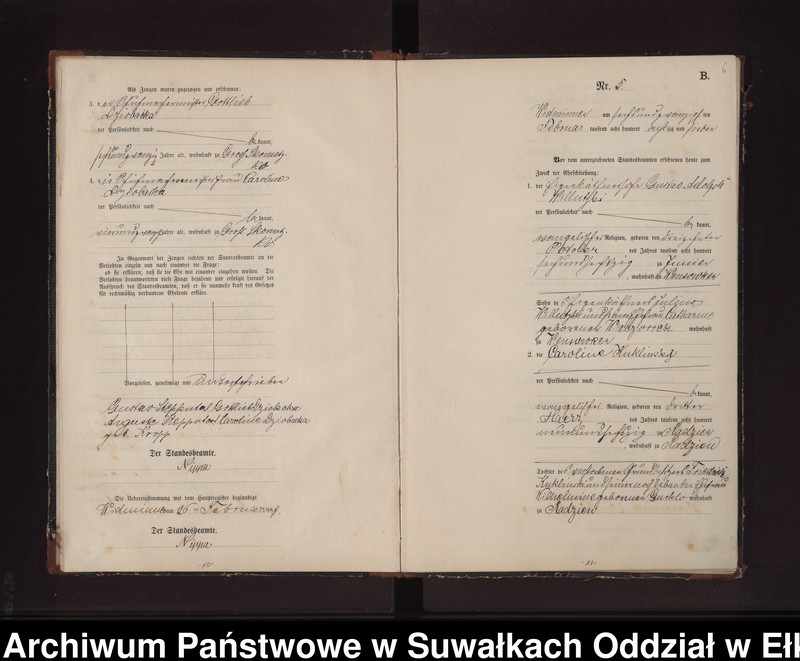 Als Zeugen waren zugezogen und erschienen:
3. der Schuhmachermeister Gottlieb
Dziobatka
der Persönlichkeit nach
be kannt,
sechsundzwanzig Jahre alt, wohnhaft zu Groß Skomatz-
ko
4. die Schuhmachermeisterfrau Caroline
Dziobatka
der Persönlichkeit nach
be kannt,
vierundzwanzig Jahre alt, wohnhaft zu Groß Skomatz-
ko
In Gegenwart der Zeugen richtete der Standesbeamte an die
Verlobten einzeln und nach einander die Frage:
ob sie erklären, daß sie die Ehe mit einander eingehen wollen. Die
Verlobten beantworteten diese Frage bejahend und erfolgte hierauf der
Ausspruch des Standesbeamten, daß er sie nunmehr kraft des Gesetzes
für rechtmäßig verbundene Eheleute erkläre.
Vorgelesen, genehmigt und Unterschrieben
Gustav Gottlieb Dziobatka
Auguste Caroline Dziobatka
Der Standesbeamte.
Nippa
Die Uebereinstimmung mit dem Hauptregister beglaubigt
Widminnen am 26 ten Februar 1887.
Der Standesbeamte.
Nippa
- 10 -
6
B.
Nr. 5.
Widminnen am sechsundzwanzigsten
Februar tausend acht hundert achtzig und sieben
Vor dem unterzeichneten Standesbeamten erschienen heute zum
Zweck der Eheschließung:
1. der Eigenkäthnersohn Gustav Adolph
Willutzki
der Persönlichkeit nach
be kannt,
evangelischer Religion, geboren den dreizehnten
Oktober des Jahres tausend acht hundert
sechsundsechzig zu
, wohnhaft zu Wensowken
Sohn des Eigenkäthners Julius
Willutzki und dessen Ehefrau Catharine
geborenen wohnhaft
zu Wensowken
2. die Caroline Kuklinski
der Persönlichkeit nach
be kannt,
evangelischer Religion, geboren den dritten
Maerz des Jahres tausend acht hundert
neunundsechzig zu Radzien
, wohnhaft zu Radzien
Tochter des verstorbenen Grundbesitzers Friedrich
Kuklinski und seiner noch lebenden Ehefrau
Wilhelmine geborenen wohnhaft
zu Radzien
- 11 -
Archiwum Państwowe w Suwałkach Oddział w Ełk